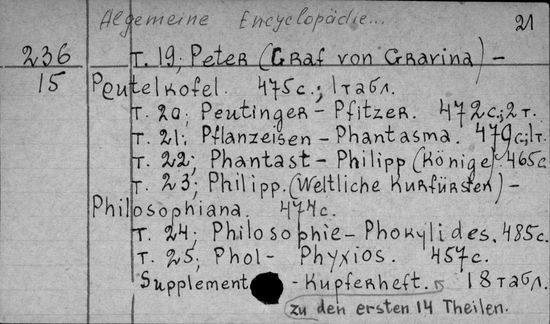 Algemeine Encyclopädie... 21
236 т. 19; Peter (Graf von Gravina) –
15 Peutelkofel. 475с.; 1табл.
т. 20; Peutinger – Pfitzer. 472с.; 2т.
т. 21; Pflanzeisen – Phantasma. 479с; 1т.
т. 22; Phantast – Philipp (Könige). 465с.
т. 23; Philipp. (Weltliche Kurfürsten) –
Philosophiana. 474с.
т. 24; Philosophie – Phokylides. 485с.
т. 25; Phol – Phyxios. 457с.
Supplement - Kupferheft. 18 табл.
zu den ersten 14 Theilen.